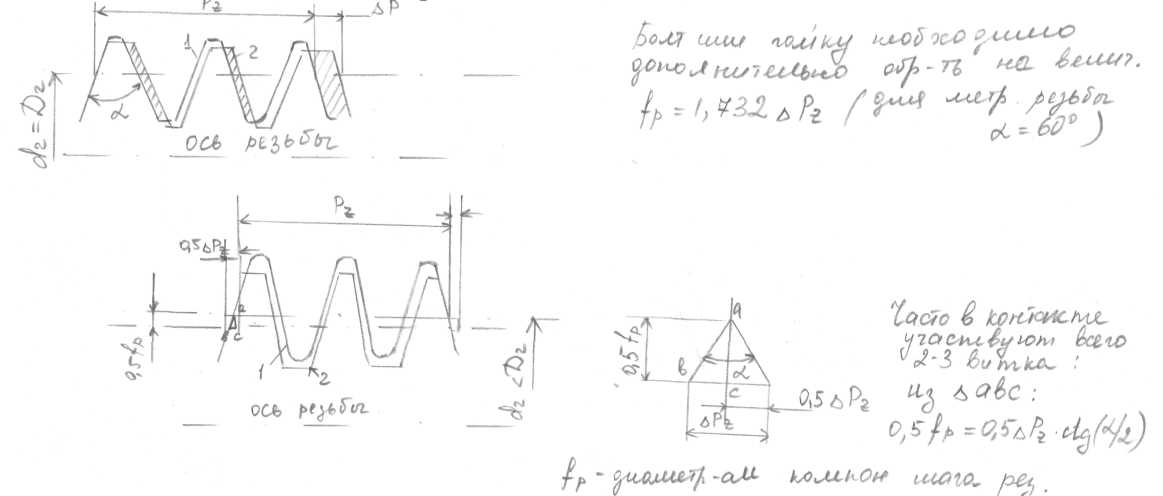 Pz
ΔP
1
2
α
d2 = D2
ось резьбы
Болт или гайку необходимо
дополнительно обр-ть на велич.
fp = 1,732 ΔPz (для метр. резьбы
α = 60°)
Pz
0,5ΔPz
a
c
0,5fp
1
2
d2 < D2
ось резьбы
a
0,5fp
в
α
c
0,5ΔPz
ΔPz
Часто в контакте
участвуют всего
2-3 витка:
из Δавс:
0,5fp = 0,5ΔPz·ctg(α/2)
fp - диаметр-ая компен шага рез.